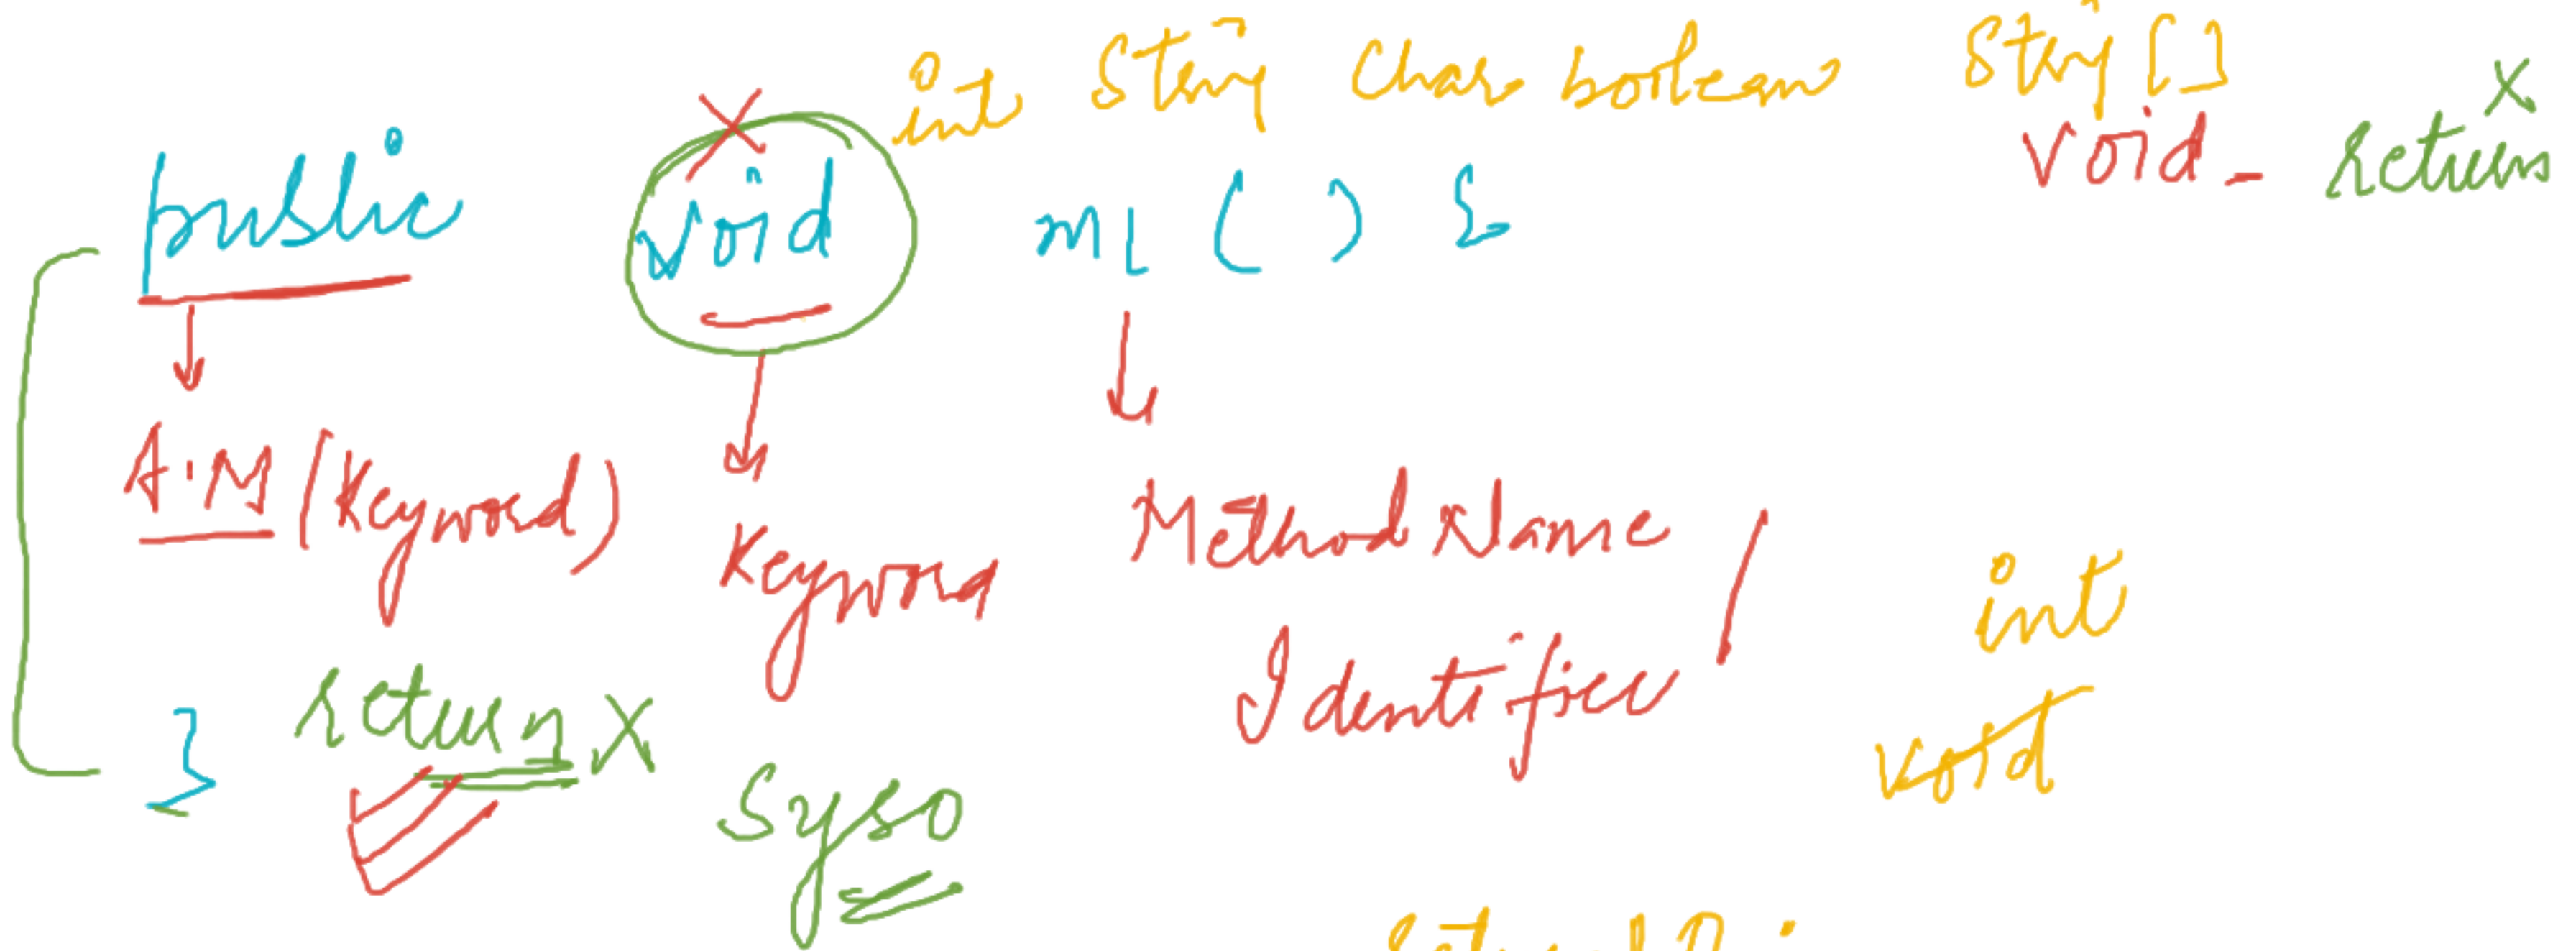 int String Char boolean String []
void - return x
public void m1 ( ) {
A.M (Keyword) Keyword Method Name /
Identifier
int
void
} return x
Syso